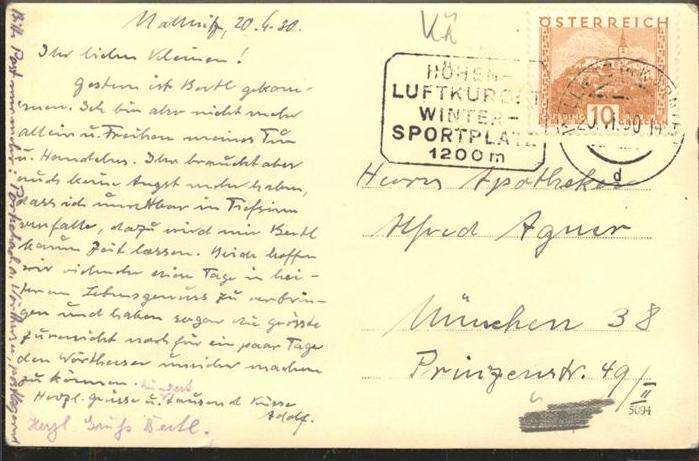 Mallnitz, 20. 6. 30.
Ihr lieben Kleinen!
Gestern ist Bertl gekom-
men. Ich bin also nicht mehr
allein u. Freihen meines Tun
u. Handelns. Ihr braucht aber
auch keine Angst mehr haben,
dass ich in Tiefsinn
verfalle, dazu wird mir Bertl
kaum Zeit lassen. Beide hoffen
wir eine Tage in hei-
terem Lebensgenuss zu verbrin-
gen und haben sogar die grösste
Zuversicht noch für ein paar Tage
den Wörthersee unsicher machen
zu können.
Herzl. Grüsse u. tausend Küsse
Adolf.
Herzl Gruß Bertl.
ÖSTERREICH
10
HÖHEN-
LUFTKURORT
WINTER-
SPORTPLATZ
1200m
20.VI.30 14
d
Herrn Apotheker
Alfred Agner
München 38
Prinzenstr. 49/II
5094